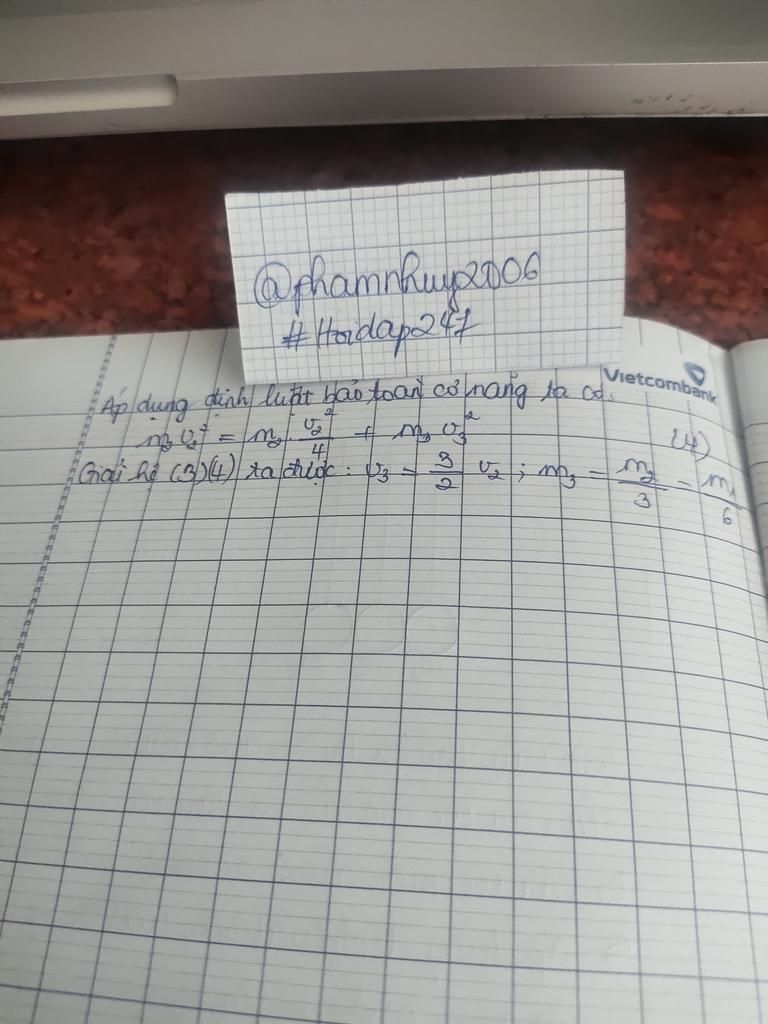 @phamnhuy2006
#Hoidap247
Vietcombank
Áp dụng định luật bảo toàn cơ năng ta có.
m₂v₂² = m₂ v₂²/4 + m₃ v₃² (4)
Giải hệ (3)(4) ta được: v₃ = 3/2 v₂ ; m₃ = m₂/3 = m₁/6